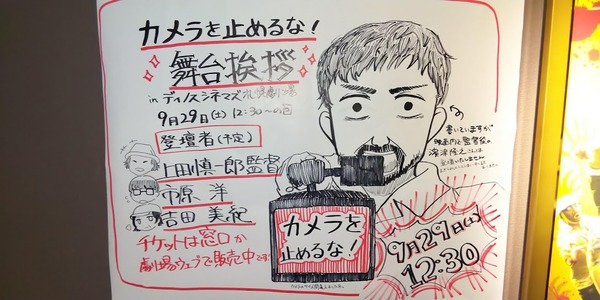 カメラを止めるな!
舞台挨拶
in ディノスシネマズ札幌劇場
9月29日(土) 12:30〜の回
登壇者(予定)
上田慎一郎監督
市原 洋
吉田 美紀
チケットは窓口か
劇場ウェブで販売中です!
書いていますが
映画内で監督役の
濱津隆之さんは
登壇いたしません
カメラを
止めるな!
9月29日(土)
12:30